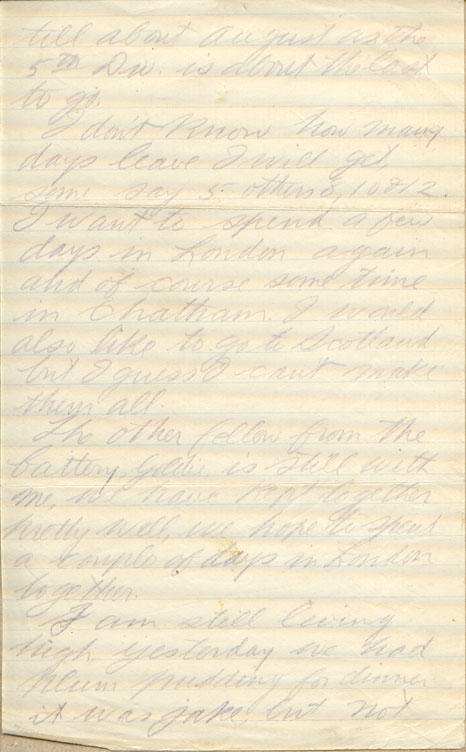 till about August as the
5th Div. is about the last
to go.
I don't know how many
days leave I will get,
some say 5 others 8, 10 & 12.
I want to spend a few
days in London again
and of course some time
in Chatham. I would
also like to go to Scotland
but I guess I can't make
them all.
The other fellow from the
battery, Goldie is still with
me, we have kept together
pretty well, we hope to spend
a couple of days in London
together.
I am still living
high yesterday we had
plum pudding for dinner
it was jake, but not